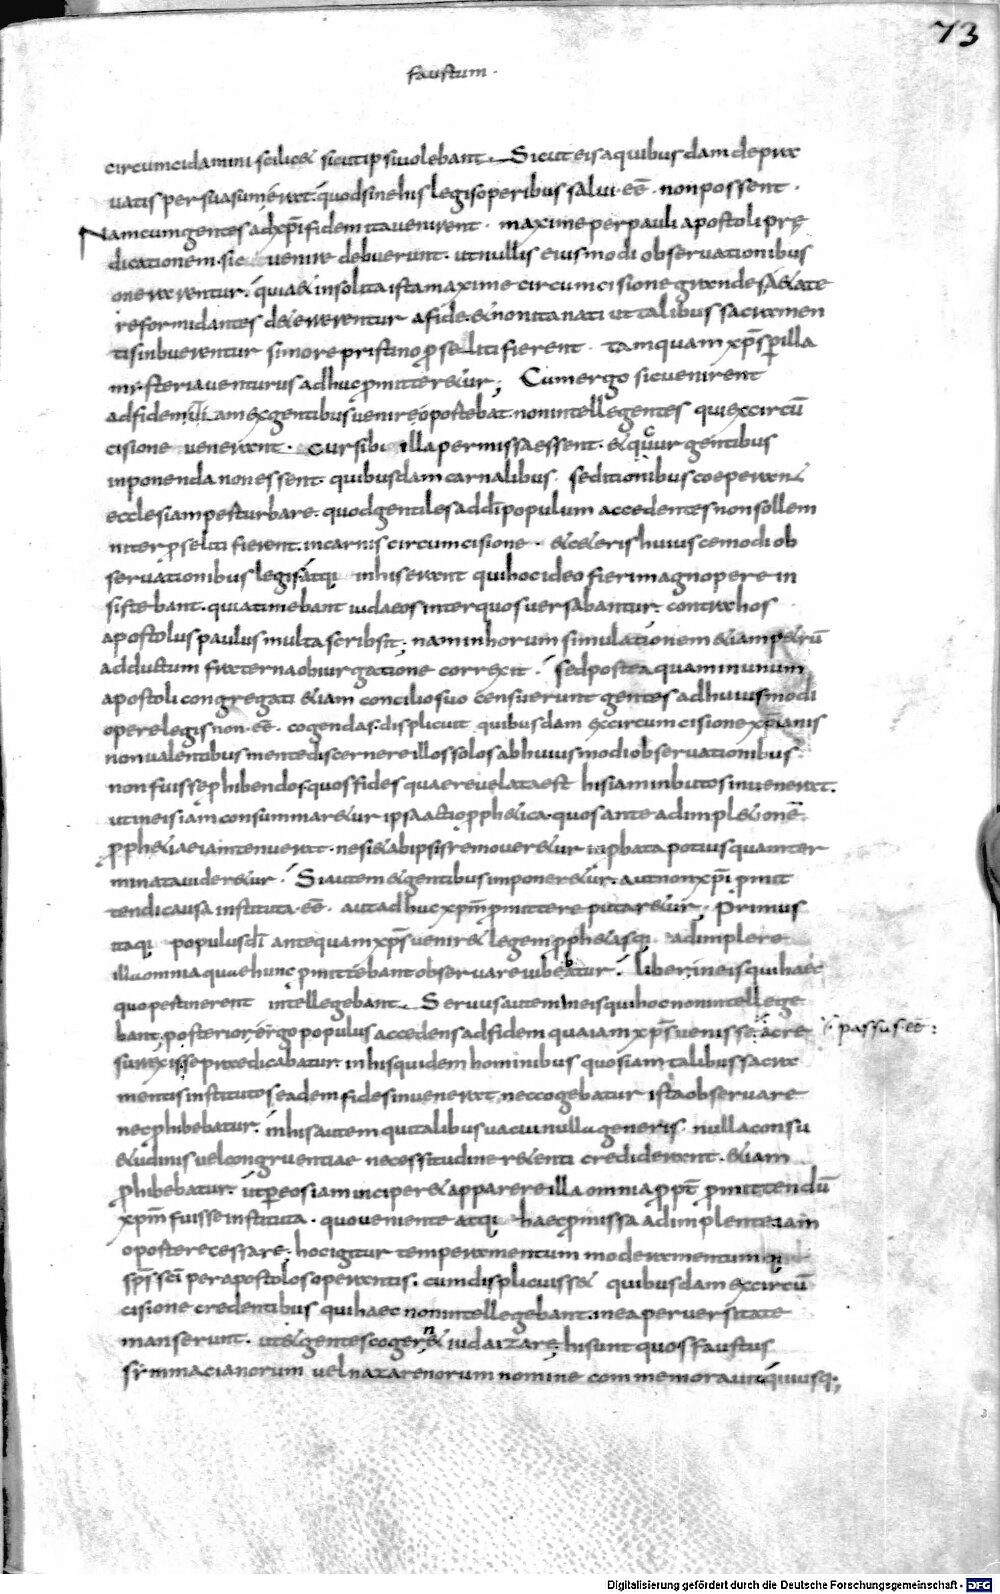 73
faustum.
circumcidamini scilicet sicut ipsi volebant. Sicut eis a quibusdam depra
vatis persuasum erat. quod sine his legis operibus salvi. eē. non possent.
Nam cum gentes ad xp̄i fidem ita venirent. maxime per pauli apostoli prę
dicationem. sic venire debuerunt. ut nullis eiusmodi observationibus
onerarentur. quia et insolita ista maxime circumcisione grandes aetate
reformidantes deterrerentur a fide. et non ita nati ut talibus sacramen
tis inbuerentur si more pristino p̄seliti fierent. tamquam xp̄s p̄ illa
misteria venturus adhuc p̄mitteretur; Cum ergo sic venirent
ad fidem ut iam ex gentibus venire oportebat. non intellegentes qui ex circū
cisione venerant. cur sibi illa permissa essent. et qur gentibus
inponenda non essent. quibusdam carnalibus seditionibus coeperant
ecclesiam perturbare. quod gentiles ad dī populum accedentes non sollem
niter p̄seliti fierent. in carnis circumcisione. et ceteris huiuscemodi ob
servationibus legis atq; in his erant qui hoc ideo fieri magnopere in
sistebant. quia timebant iudaeos inter quos versabantur. contra hos
apostolus paulus multa scribsit. nam in horum simulationem etiam petrū
adductum fraterna obiurgatione correxit. sed postea quam in unum
apostoli congregati etiam concilio suo censuerunt gentes ad huiusmodi
opere legis non. eē. cogendas. displicuit quibusdam ex circumcisione xp̄ianis
non valentibus mente discernere illos solos ab huiusmodi observationibus
non fuisse p̄hibendos quos fides quae revelata est his iam inbutos invenerat.
ut in eis iam consummaretur ipsa actio p̄phetica. quos ante adimpletionē
p̄phetiae iam tenuerat. ne si et ab ipsis removeretur inp̄bata potius quam ter
minata videretur. Si autem et gentibus imponeretur. aut non xp̄i p̄mit
tendi causa instituta. eē. aut adhuc xp̄m p̄mittere putaretur. Primus
itaq; populus dī antequam xp̄s veniret legem p̄phetasq; adimplere
illa omnia quae hunc p̄mittebant observare iubebatur. liber in eis qui haec
quo pertinerent intellegebant. Servus autem in eis qui hoc non intellege
bant. posterior ergo populus accedens ad fidem qua iam xp̄s venisse. ac re
passus. et:
surrexisse praedicabatur. in his quidem hominibus quos iam talibus sacra
mentis institutos eadem fides invenerat. nec cogebatur ista observare
nec p̄hibebatur. in his autem qui talibus vacui nulla generis. nulla consu
etudinis vel congruentiae necessitudine retenti crediderant. etiam
p̄hibebatur. ut p̄ eos iam inciperet apparere illa omnia p̄pt̄ p̄mittendū
xp̄m fuisse instituta. quo veniente atq; haec p̄missa adimplente iam
oportere cessare. hoc igitur temperamentum moderamentum q;
sp̄s sc̄i per apostolos operantis. cum displicuisset quibusdam ex circū
cisione credentibus qui haec non intellegebant. in ea perversitate
manserunt. ut et gentes cogerent iudaizare. hi sunt quos faustus
symmacianorum vel nazarenorum nomine commemoravit. qui usq;
Digitalisierung gefördert durch die Deutsche Forschungsgemeinschaft - DFG